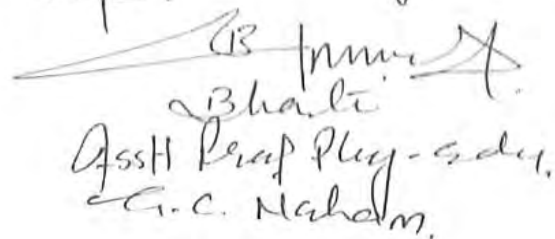 Bharti
Asstt Prof Phy-edu.
G.C. Maham.